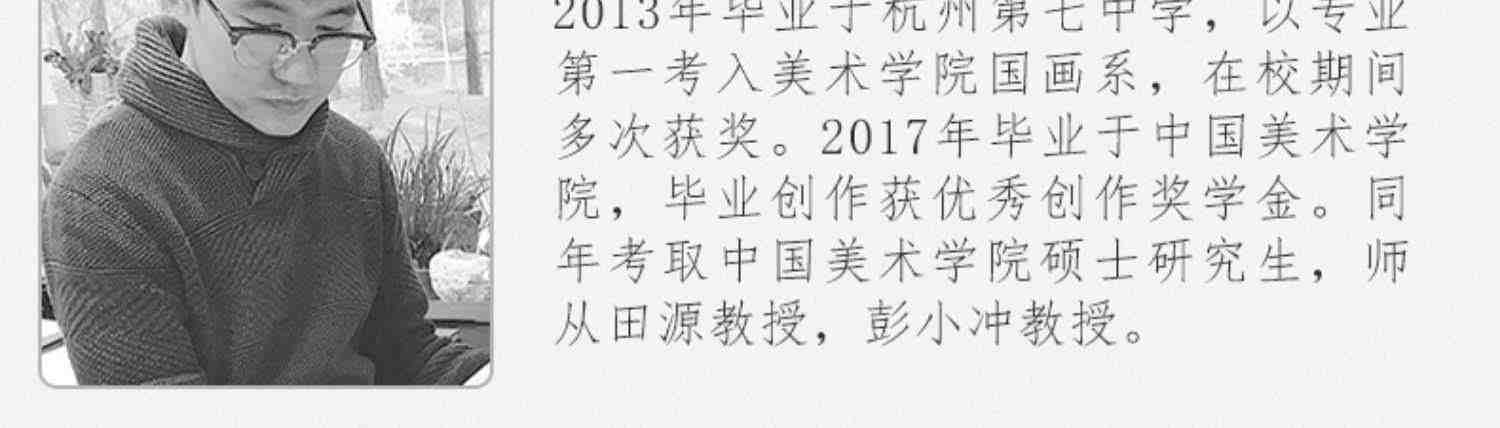 2013年毕业于杭州第七中学，以专业
第一考入美术学院国画系，在校期间
多次获奖。2017年毕业于中国美术学
院，毕业创作获优秀创作奖学金。同
年考取中国美术学院硕士研究生，师
从田源教授，彭小冲教授。